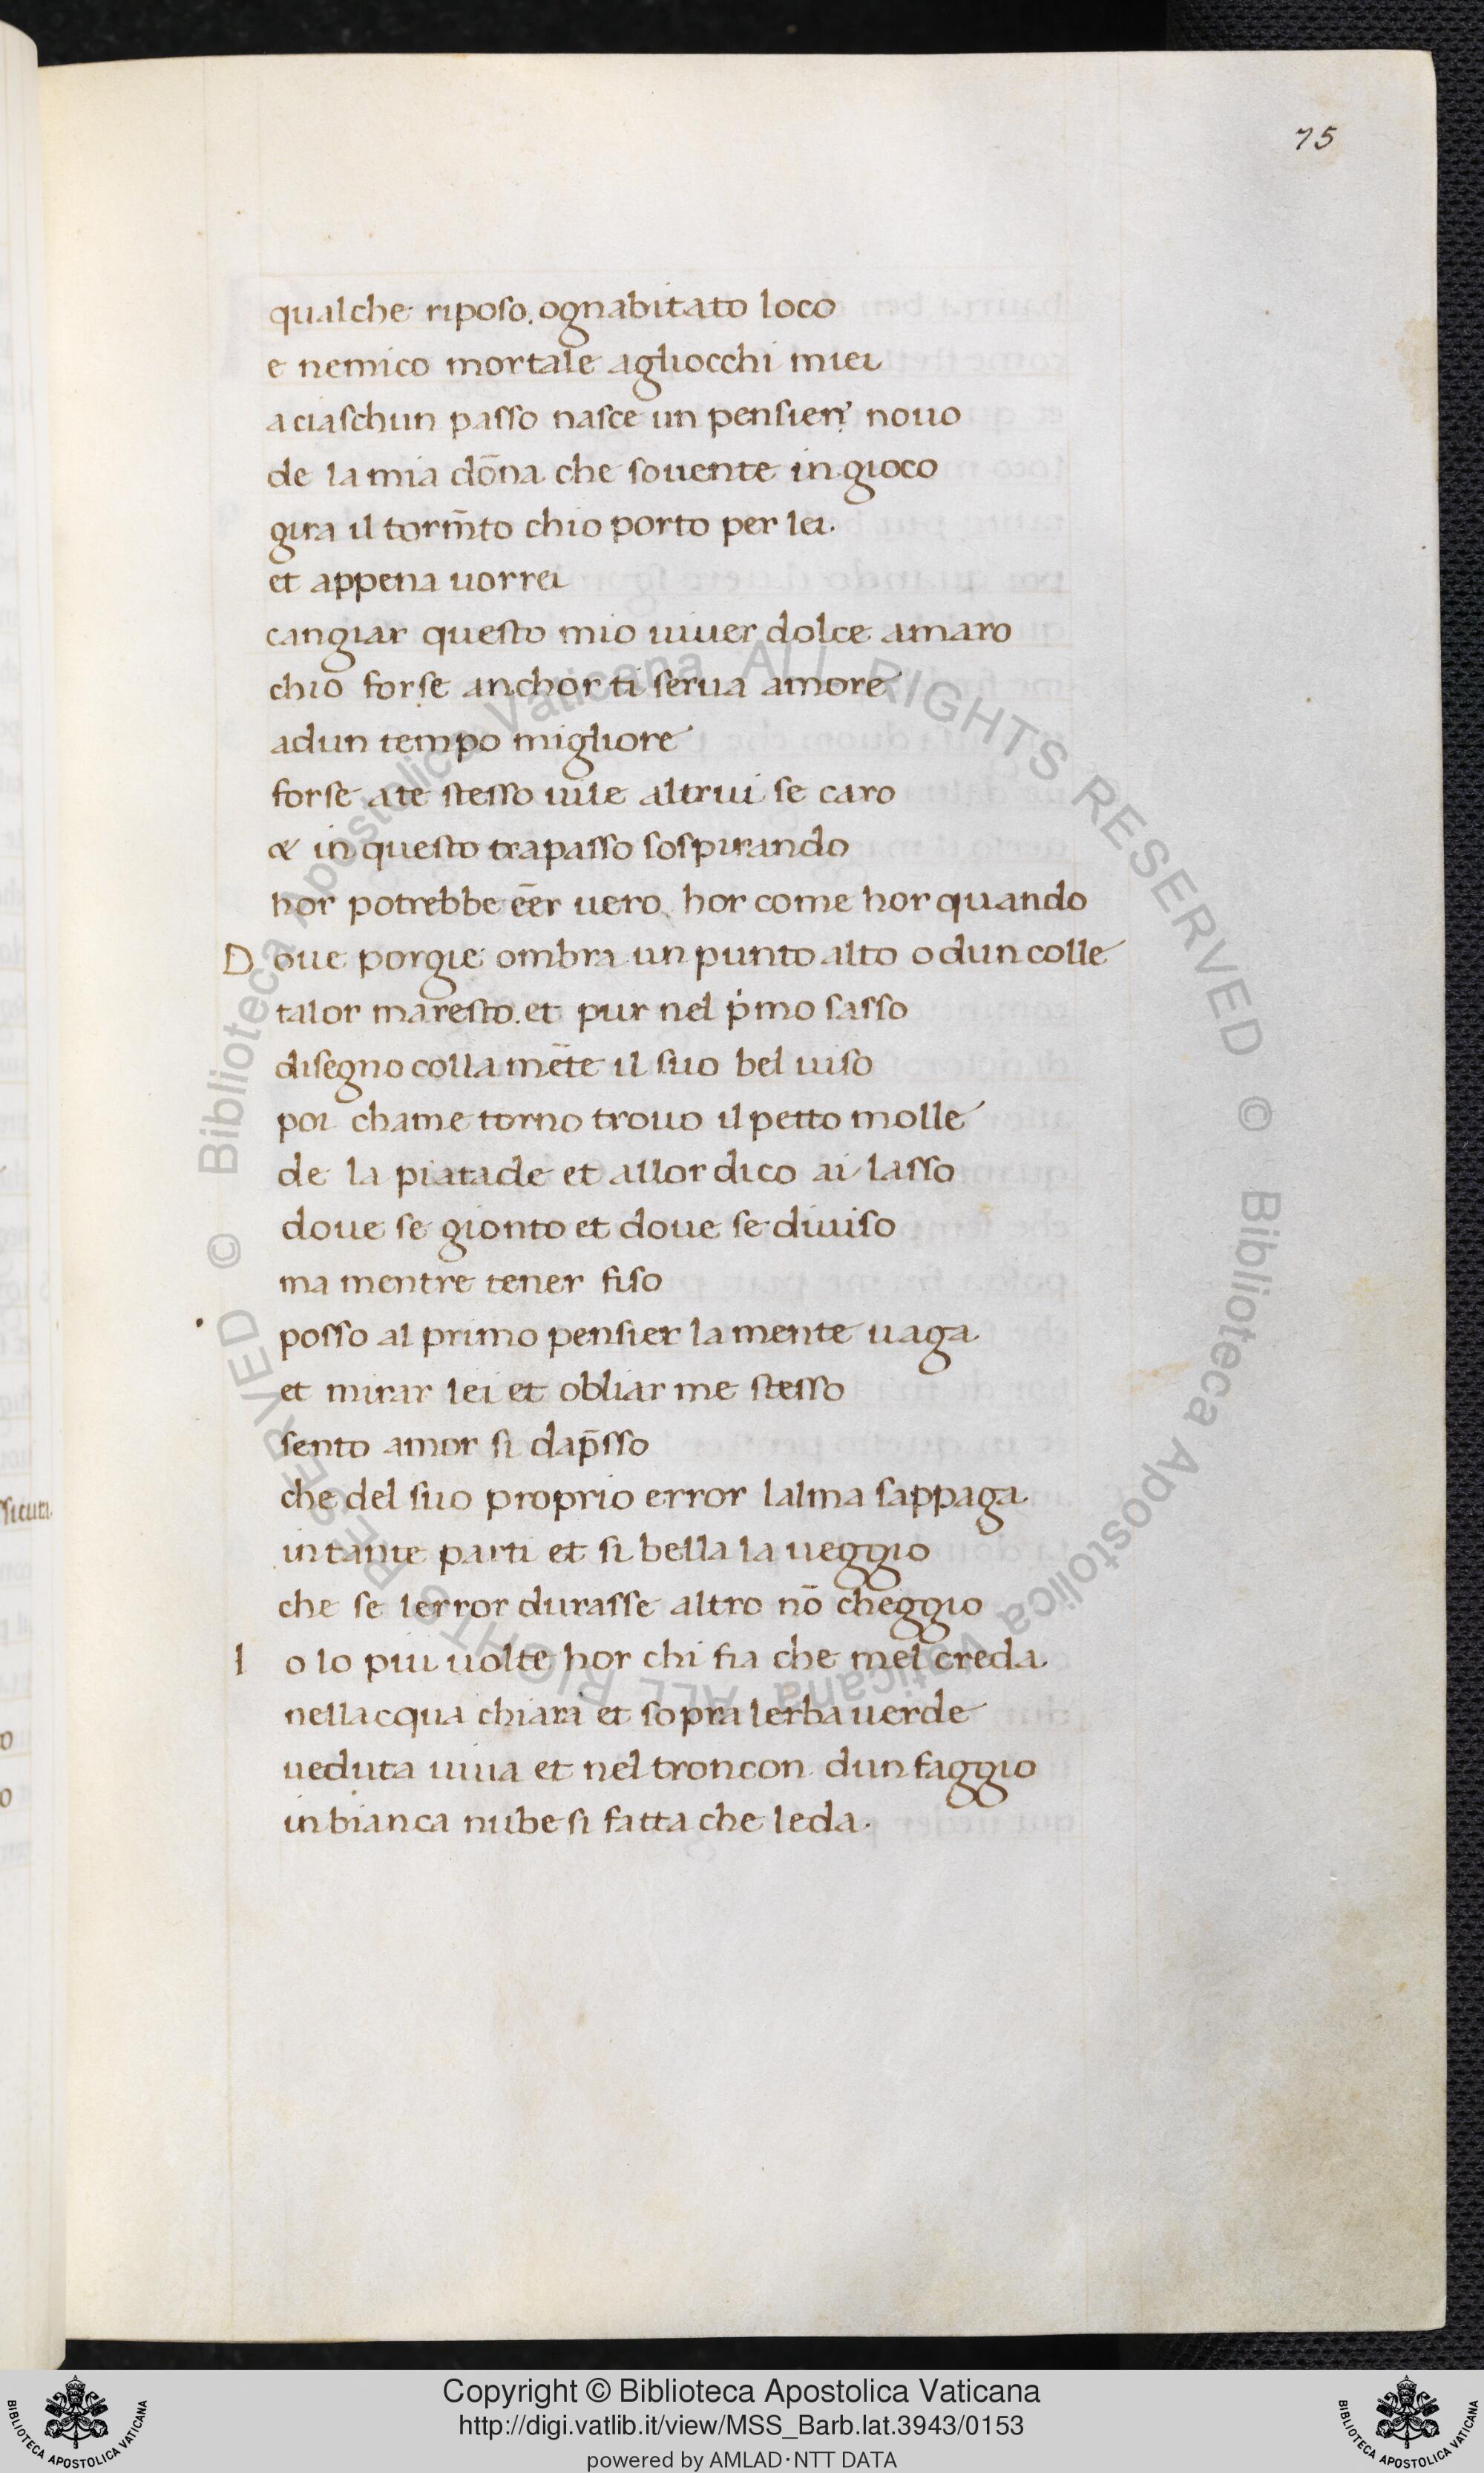 75
qualche riposo. ognabitato loco
e nemico mortale agliocchi miei
a ciaschun passo nasce un pensier nouo
de la mia dōna che souente in gioco
gira il torm̄to chio porto per lei.
et appena uorrei
cangiar questo mio uiuer dolce amaro
chio forse anchor ti serua amore
adun tempo migliore
forse ate stesso uile altrui se caro
& in questo trapasso sospirando
hor potrebbe eēr uero hor come hor quando
D oue porgie ombra un punto alto o dun colle
talor maresto. et pur nel pͥmo sasso
disegno colla mēte il suo bel uiso
poi chame torno trouo il petto molle
de la piatade et allor dico ai lasso
doue se gionto et doue se diuiso
ma mentre tener fiso
posso al primo pensier la mente uaga
et mirar lei et obliar me stesso
sento amor si dap̄sso
che del suo proprio error lalma sappaga
in tante parti et si bella la ueggio
che se lerror durasse altro nō cheggio
I o lo piu uolte hor chi fia che mel creda
nellacqua chiara et sopra lerba uerde
ueduta uiua et nel troncon dun faggio
in bianca nube si fatta che leda.
© Biblioteca Apostolica Vaticana ALL RIGHTS RESERVED
© Biblioteca Apostolica Vaticana ALL RIGHTS RESERVED
BIBLIOTECA APOSTOLICA VATICANA
Copyright © Biblioteca Apostolica Vaticana
http://digi.vatlib.it/view/MSS_Barb.lat.3943/0153
powered by AMLAD·NTT DATA
BIBLIOTECA APOSTOLICA VATICANA